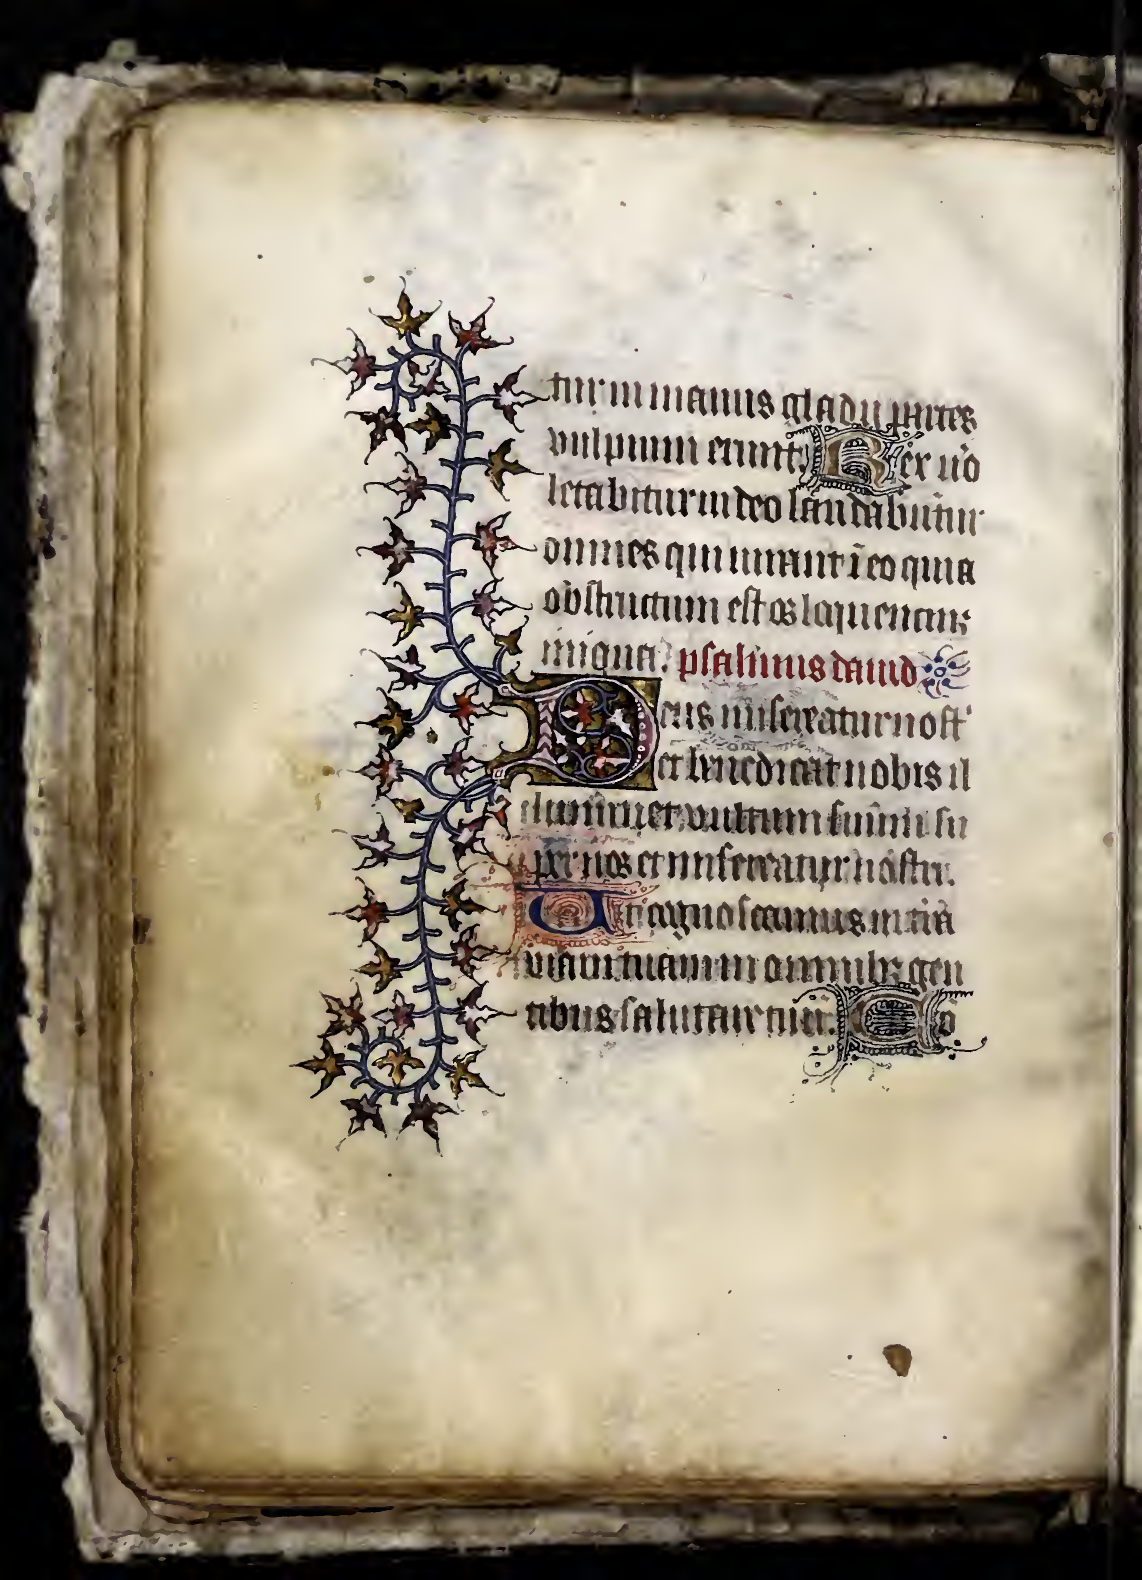 tur in manus gladii partes
vulpium erunt. Rex v̄o
letabitur in deo laudabūtur
omnes qui iurant ī eo quia
obstructum est os loquencium
iniqua. psalmus dauid
Deus misereatur nostr'
et benedicat nobis il
illuminet vultum suum su
per nos et misereatur nostri.
Ut cognoscamus in t̄ra
viam tuam in omnibꝫ gen
tibus salutare tuum. Cō